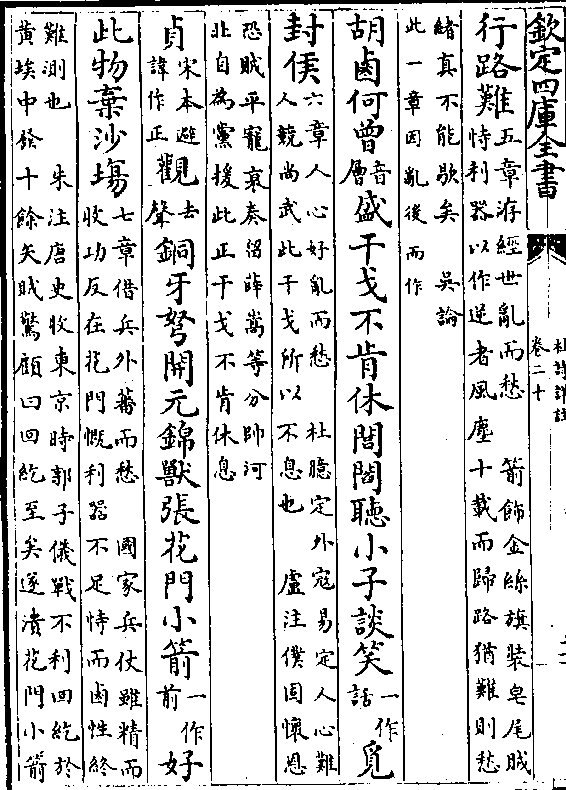 欽定四庫全書
杜詩詳註
卷二十
行路難五章游經世亂而愁 箭飾金絲旗裝皂尾賊
恃利器以作逆者風塵十載而歸路猶難則愁
緒真不能歇矣 吳論
此一章因亂後而作
胡鹵何曾音層盛干戈不肯休閭閻聽小子談笑一作話覓
封侯六章人心好亂而愁 杜臆定外寇易定人心難
人競尚武此干戈所以不息也 盧注僕固懷恩
恐賊平寵衰奏留薛嵩等分帥河
北自為黨援此正干戈不肯休息
貞宋本避諱作正觀去聲銅牙弩開元錦獸張花門小箭一作前好
此物棄沙塲七章借兵外蕃而愁 國家兵仗雖精而
收功反在花門慨利器不足恃而鹵性終
難測也 朱注唐史收東京時郭子儀戰不利回紇於
黄埃中發十餘矢賊驚顧曰回紇至矣遂潰花門小箭